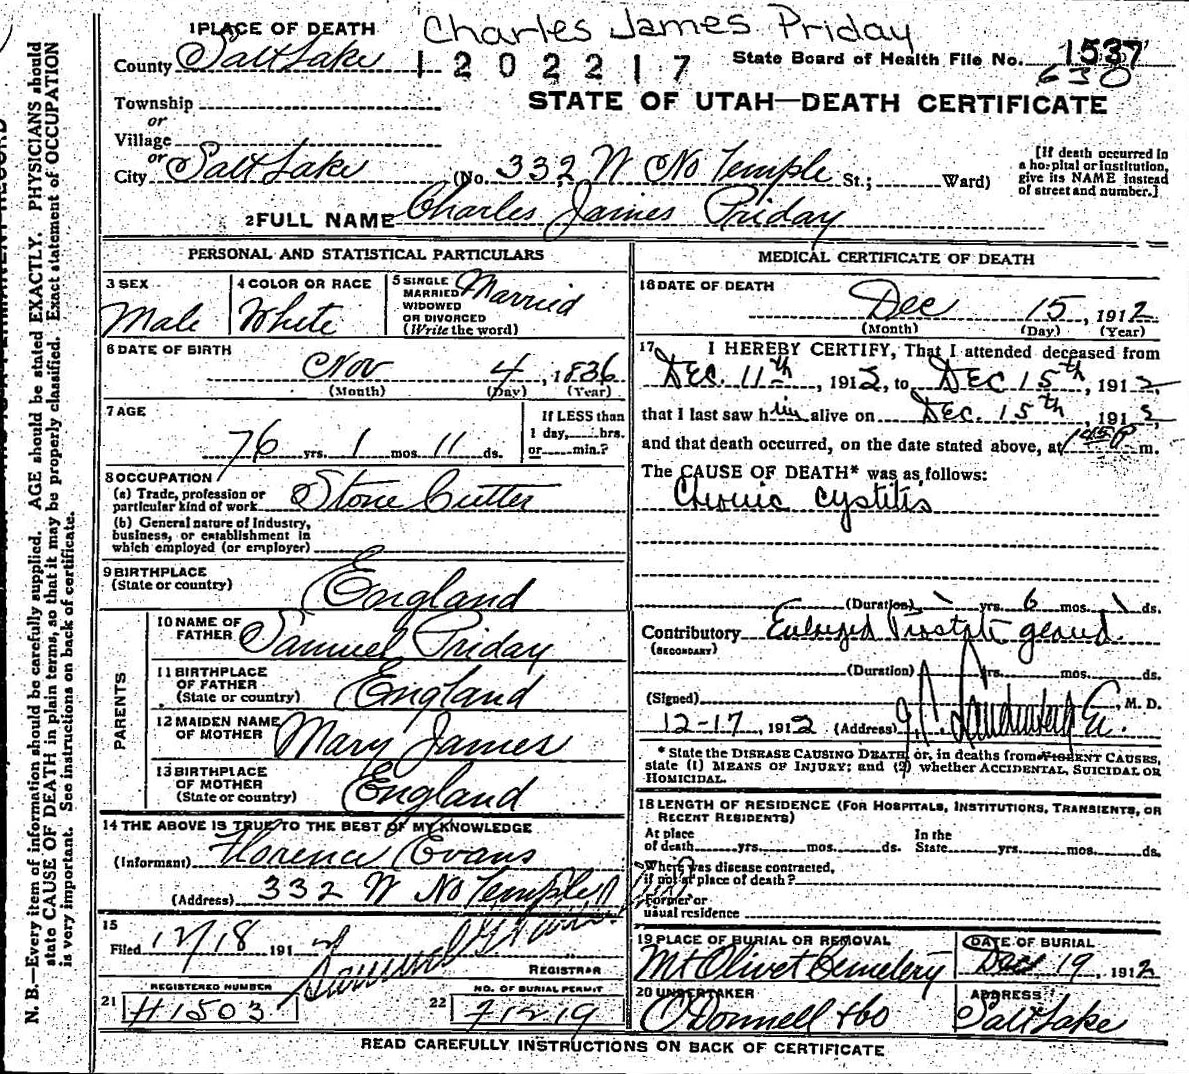 Charles James Priday
1 PLACE OF DEATH
County Salt Lake 1202217 State Board of Health File No. 1537
630
STATE OF UTAH—DEATH CERTIFICATE
Township
or
Village
or
City Salt Lake (No. 332 W No Temple St.; Ward)
[If death occurred in
a hospital or institution,
give its NAME instead
of street and number.]
2 FULL NAME Charles James Priday
PERSONAL AND STATISTICAL PARTICULARS
3 SEX
Male
4 COLOR OR RACE
White
5 SINGLE
MARRIED
WIDOWED
OR DIVORCED
(Write the word)
Married
6 DATE OF BIRTH
Nov 4, 1836
(Month) (Day) (Year)
7 AGE
76 yrs. 1 mos. 11 ds.
If LESS than
1 day, hrs.
or min.?
8 OCCUPATION
(a) Trade, profession or
particular kind of work Stone Cutter
(b) General nature of Industry,
business, or establishment in
which employed (or employer)
9 BIRTHPLACE
(State or country) England
PARENTS
10 NAME OF
FATHER Samuel Priday
11 BIRTHPLACE
OF FATHER
(State or country) England
12 MAIDEN NAME
OF MOTHER Mary James
13 BIRTHPLACE
OF MOTHER
(State or country) England
14 THE ABOVE IS TRUE TO THE BEST OF MY KNOWLEDGE
(Informant) Florence Evans
(Address) 332 W No Temple
15
Filed 12/18 191 2
REGISTRAR
REGISTERED NUMBER
21 H1503
NO. OF BURIAL PERMIT
22 71219
MEDICAL CERTIFICATE OF DEATH
16 DATE OF DEATH
Dec 15, 1912
(Month) (Day) (Year)
17 I HEREBY CERTIFY, That I attended deceased from
Dec. 11th, 1912, to Dec 15th, 1912,
that I last saw him alive on Dec. 15th, 1912,
and that death occurred, on the date stated above, at m.
The CAUSE OF DEATH* was as follows:
Chronic cystitis
(Duration) yrs. 6 mos. ds.
Contributory Enlarged Prostate gland.
(SECONDARY)
(Duration) yrs. mos. ds.
(Signed) , M. D.
12-17, 1912 (Address)
* State the DISEASE CAUSING DEATH, or, in deaths from VIOLENT CAUSES,
state (1) MEANS OF INJURY; and (2) whether ACCIDENTAL, SUICIDAL OR
HOMICIDAL.
18 LENGTH OF RESIDENCE (FOR HOSPITALS, INSTITUTIONS, TRANSIENTS, OR
RECENT RESIDENTS)
At place
of death yrs. mos. ds.
In the
State yrs. mos. ds.
Where was disease contracted,
if not at place of death?
Former or
usual residence
19 PLACE OF BURIAL OR REMOVAL
Mt Olivet Cemetery
DATE OF BURIAL
Dec 19, 1912
20 UNDERTAKER
O'Donnell & Co
ADDRESS
Salt Lake
READ CAREFULLY INSTRUCTIONS ON BACK OF CERTIFICATE
N. B.—Every item of information should be carefully supplied. AGE should be stated EXACTLY. PHYSICIANS should
state CAUSE OF DEATH in plain terms, so that it may be properly classified. Exact statement of OCCUPATION
is very important. See instructions on back of certificate.